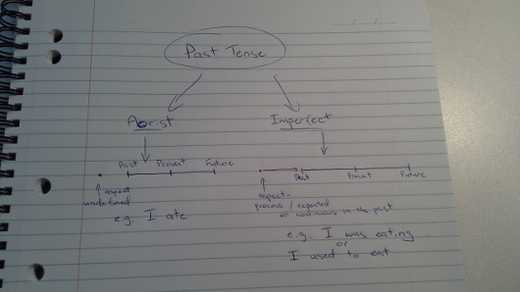 Past Tense
Aorist
Imperfect
Past Present Future
Past Present Future
aspect
undefined
aspect -
process / repeated
or continuous in the past
e.g. I ate
e.g. I was eating
or
I used to eat